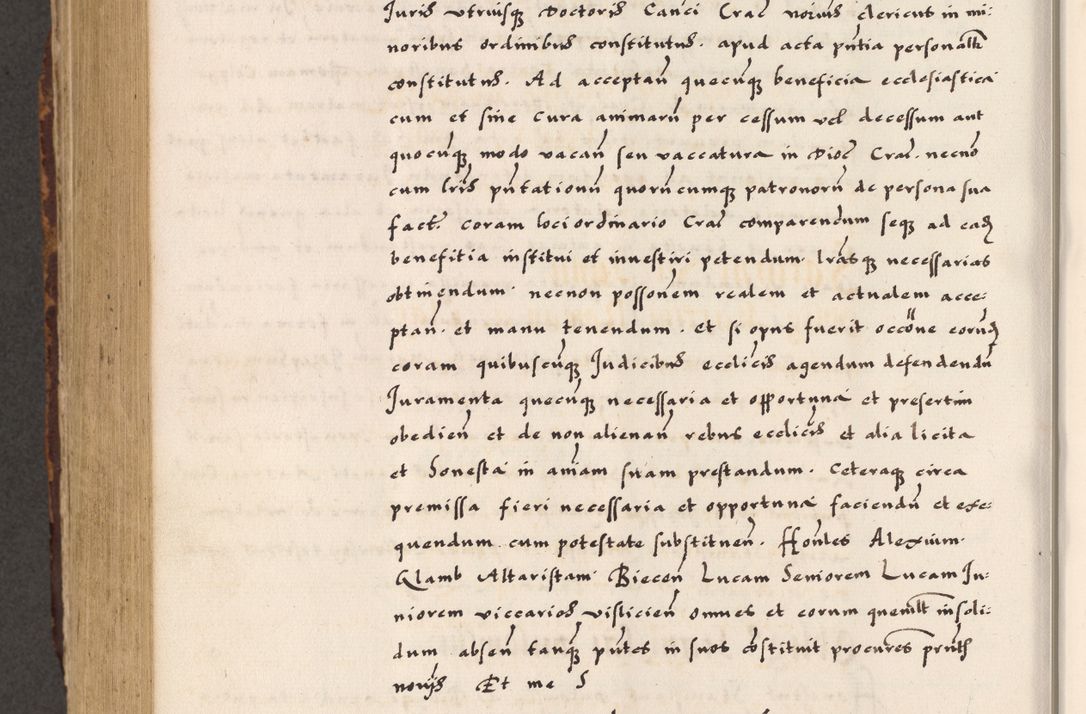 Juris vtriusq Doctoris Canci Crac noius clericus in mi-
noribus ordinibus constitutus. apud acta pntia personalr
constitutus. Ad acceptan quecunq beneficia ecclesiastica
cum et sine cura animaru per cessum vel decessum aut
quocunq modo vacan seu vaccatura in Dioc Crac. necno
cum lris pntationu quorucumq patronoru de persona sua
fact. coram loci ordinario Crac comparendum seq ad ead
benefitia institui et investiri petendum. lrasq necessarias
obtinendum. necnon possonem realem et actualem acce-
ptan. et manu tenendum. et si opus fuerit occone eorud
coram quibuscunq Judicibus ecclicis agendum defendendu
Juramenta quecunq necessaria et opportuna et presertim
obedien et de non alienan rebus ecclicis et alia licita
et honesta in aniam suam prestandum. Ceteraq circa
premissa fieri necessaria et opportuna faciendu et exe-
quendum. cum potestate substituen. Honles Alexium
Glamb Altaristam Biecen Lucam Seniorem Lucam Ju-
niorem viccarios visliciens omnes et eorum quemlt insoli-
dum absen tanq pntes in suos constituit procures prnts
novijs Et me S